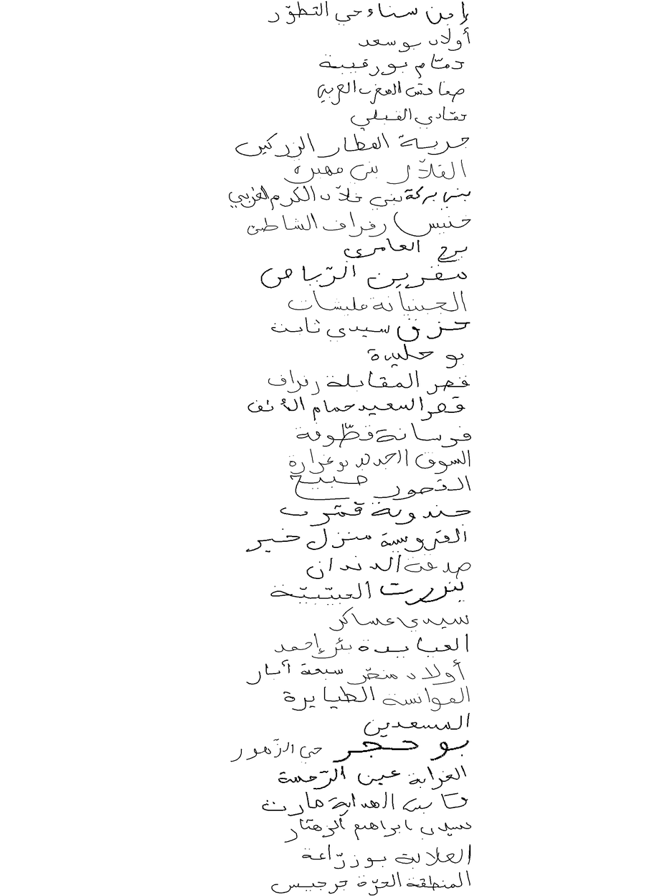 إبن سناء حي التطوّر
أولاد بوسعد
حمّام بورقيبة
صفاقس المغرب العربي
نقادي القبلي
حربة العطار الزركين
القلّال بني مهيرة
بني بركة بني خلّاد الكرم الغربي
خنيس رفراف الشاطئ
برج العامري
سفرين الرّياض
الجبنيانة مليشات
حزق سيدي ثابت
بو جليدة
قصر المقابلة رفراف
قصر السعيد حمام الأنف
فرسانة قطّوفة
السوق الجديد بوغرارة
التحرير
جندوبة قمّرت
الفردوسية منزل خير
الدندان
بنزرت
سيدي عساكر
العبابدة بئر إحمد
أولاد منصّر سبعة أبار
العوانسة الطيايرة
المسعدين
بو حجر حي الزّهور
الغرابة عين الرّحمة
قابس الهداية مارث
سيدي ابراهيم الزهّار
العلالبة بوزرّاعة
المنطقة الحرّة جرجيس